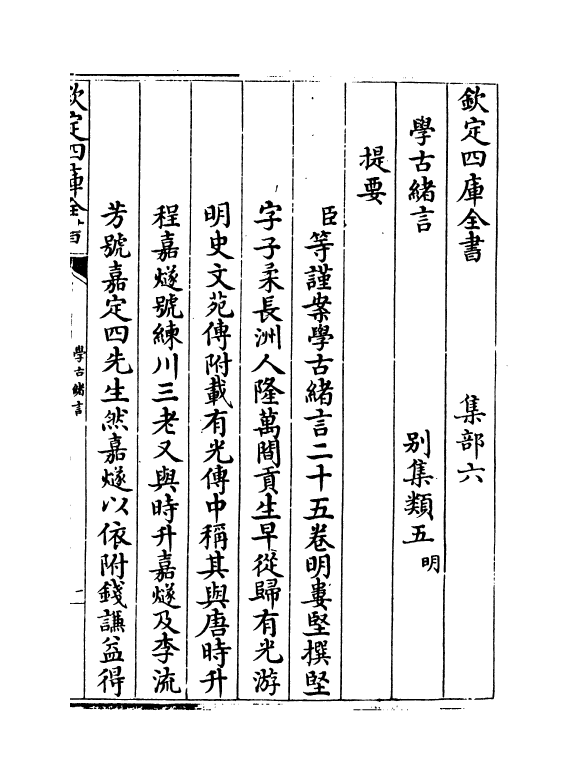 欽定四庫全書 集部六
學古緒言 别集類五 明
提要
臣等謹案學古緒言二十五卷明婁堅撰堅
字子柔長洲人隆萬間貢生早從歸有光游
明史文苑傳附載有光傳中稱其與唐時升
程嘉燧號練川三老又與時升嘉燧及李流
芳號嘉定四先生然嘉燧以依附錢謙益得
欽定四庫全
學古緒言